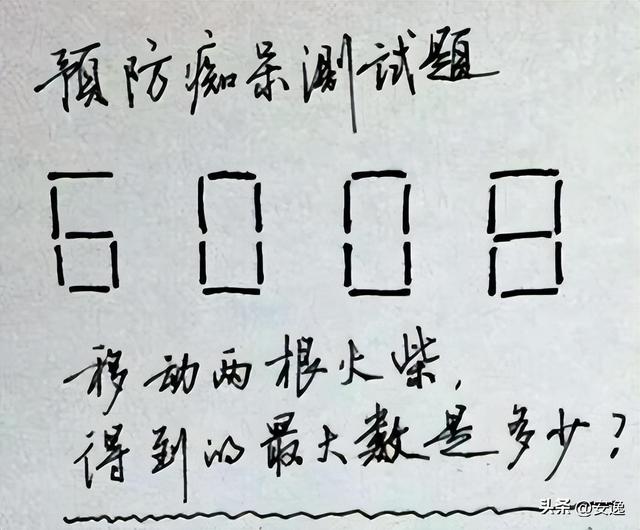 预防痴呆测试题
6008
移动两根火柴,
得到的最大数是多少?
头条@安逸